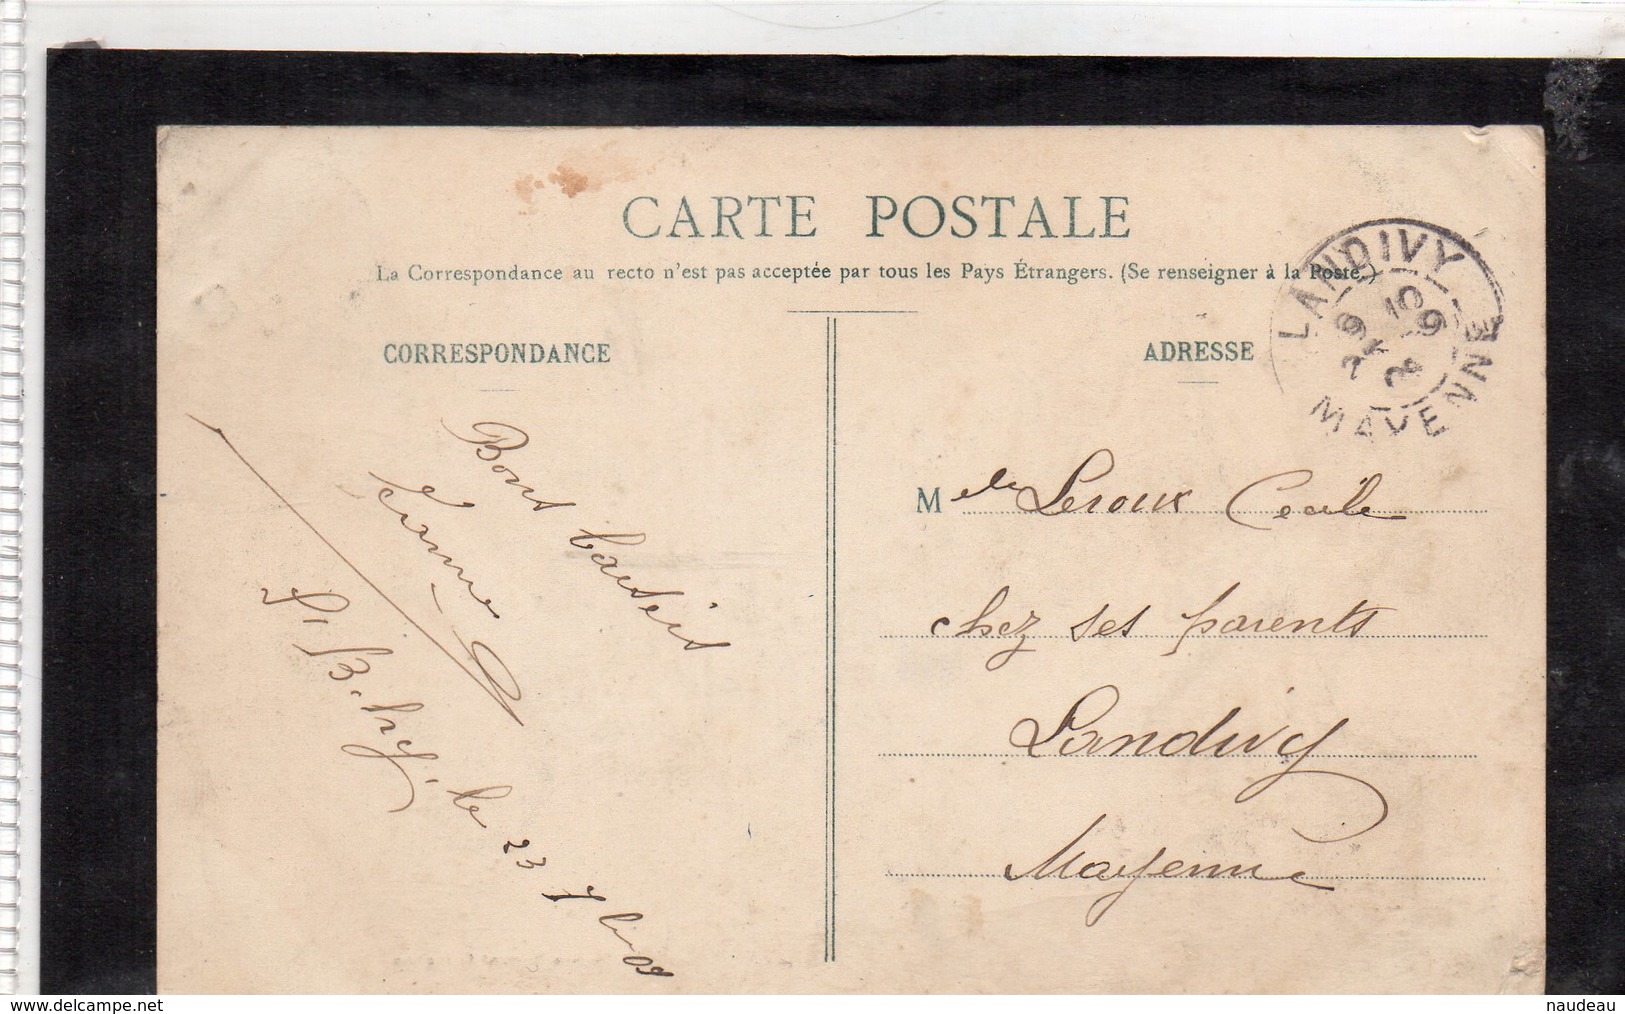 CARTE POSTALE
La Correspondance au recto n'est pas acceptée par tous les Pays Étrangers. (Se renseigner à la Poste.)
CORRESPONDANCE
ADRESSE
LANDIVY
MAYENNE
Bons baisers
Jeanne
le 23 7bre 09
Melle Leroux Cecile
chez ses parents
Landivy
Mayenne
www.delcampe.net
naudeau